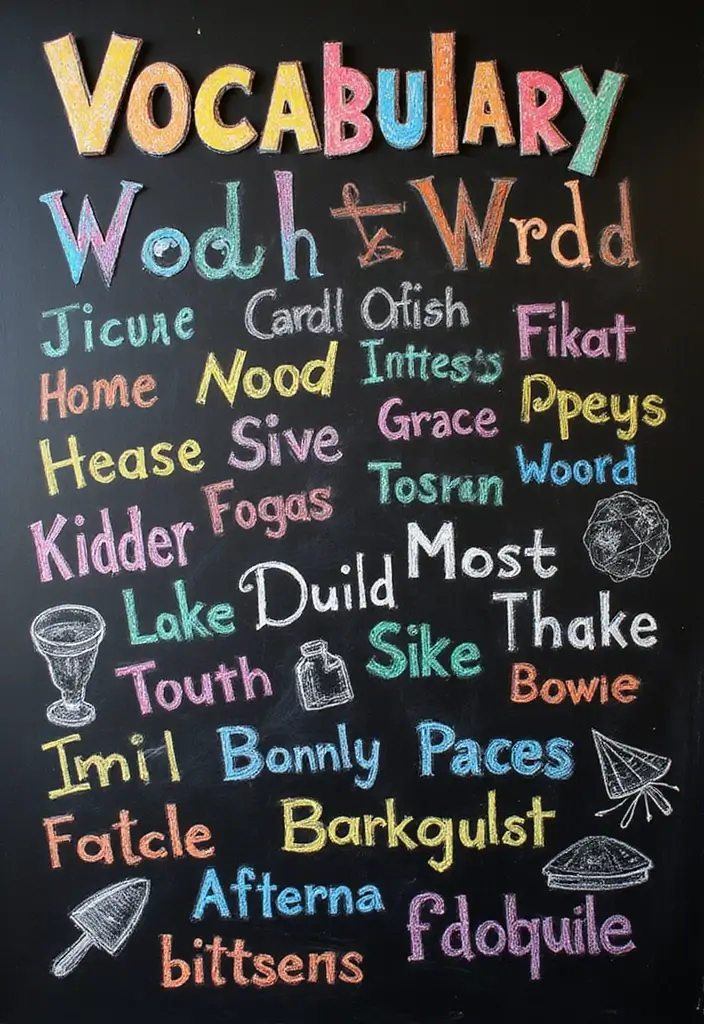 VOCABULARY
Wodh to Wrdd
Jicune Cardl Ofish Fikat
Home Nood Inttes's
Hease Sive Grace Ppeys
Kidder Fogas Tosren Woord
Lake Duild Most
Touth Sike Thake
Bowie
Imil Bonnly Paces
Fatcle Barkgulst
Afterna fdobquile
bittsens